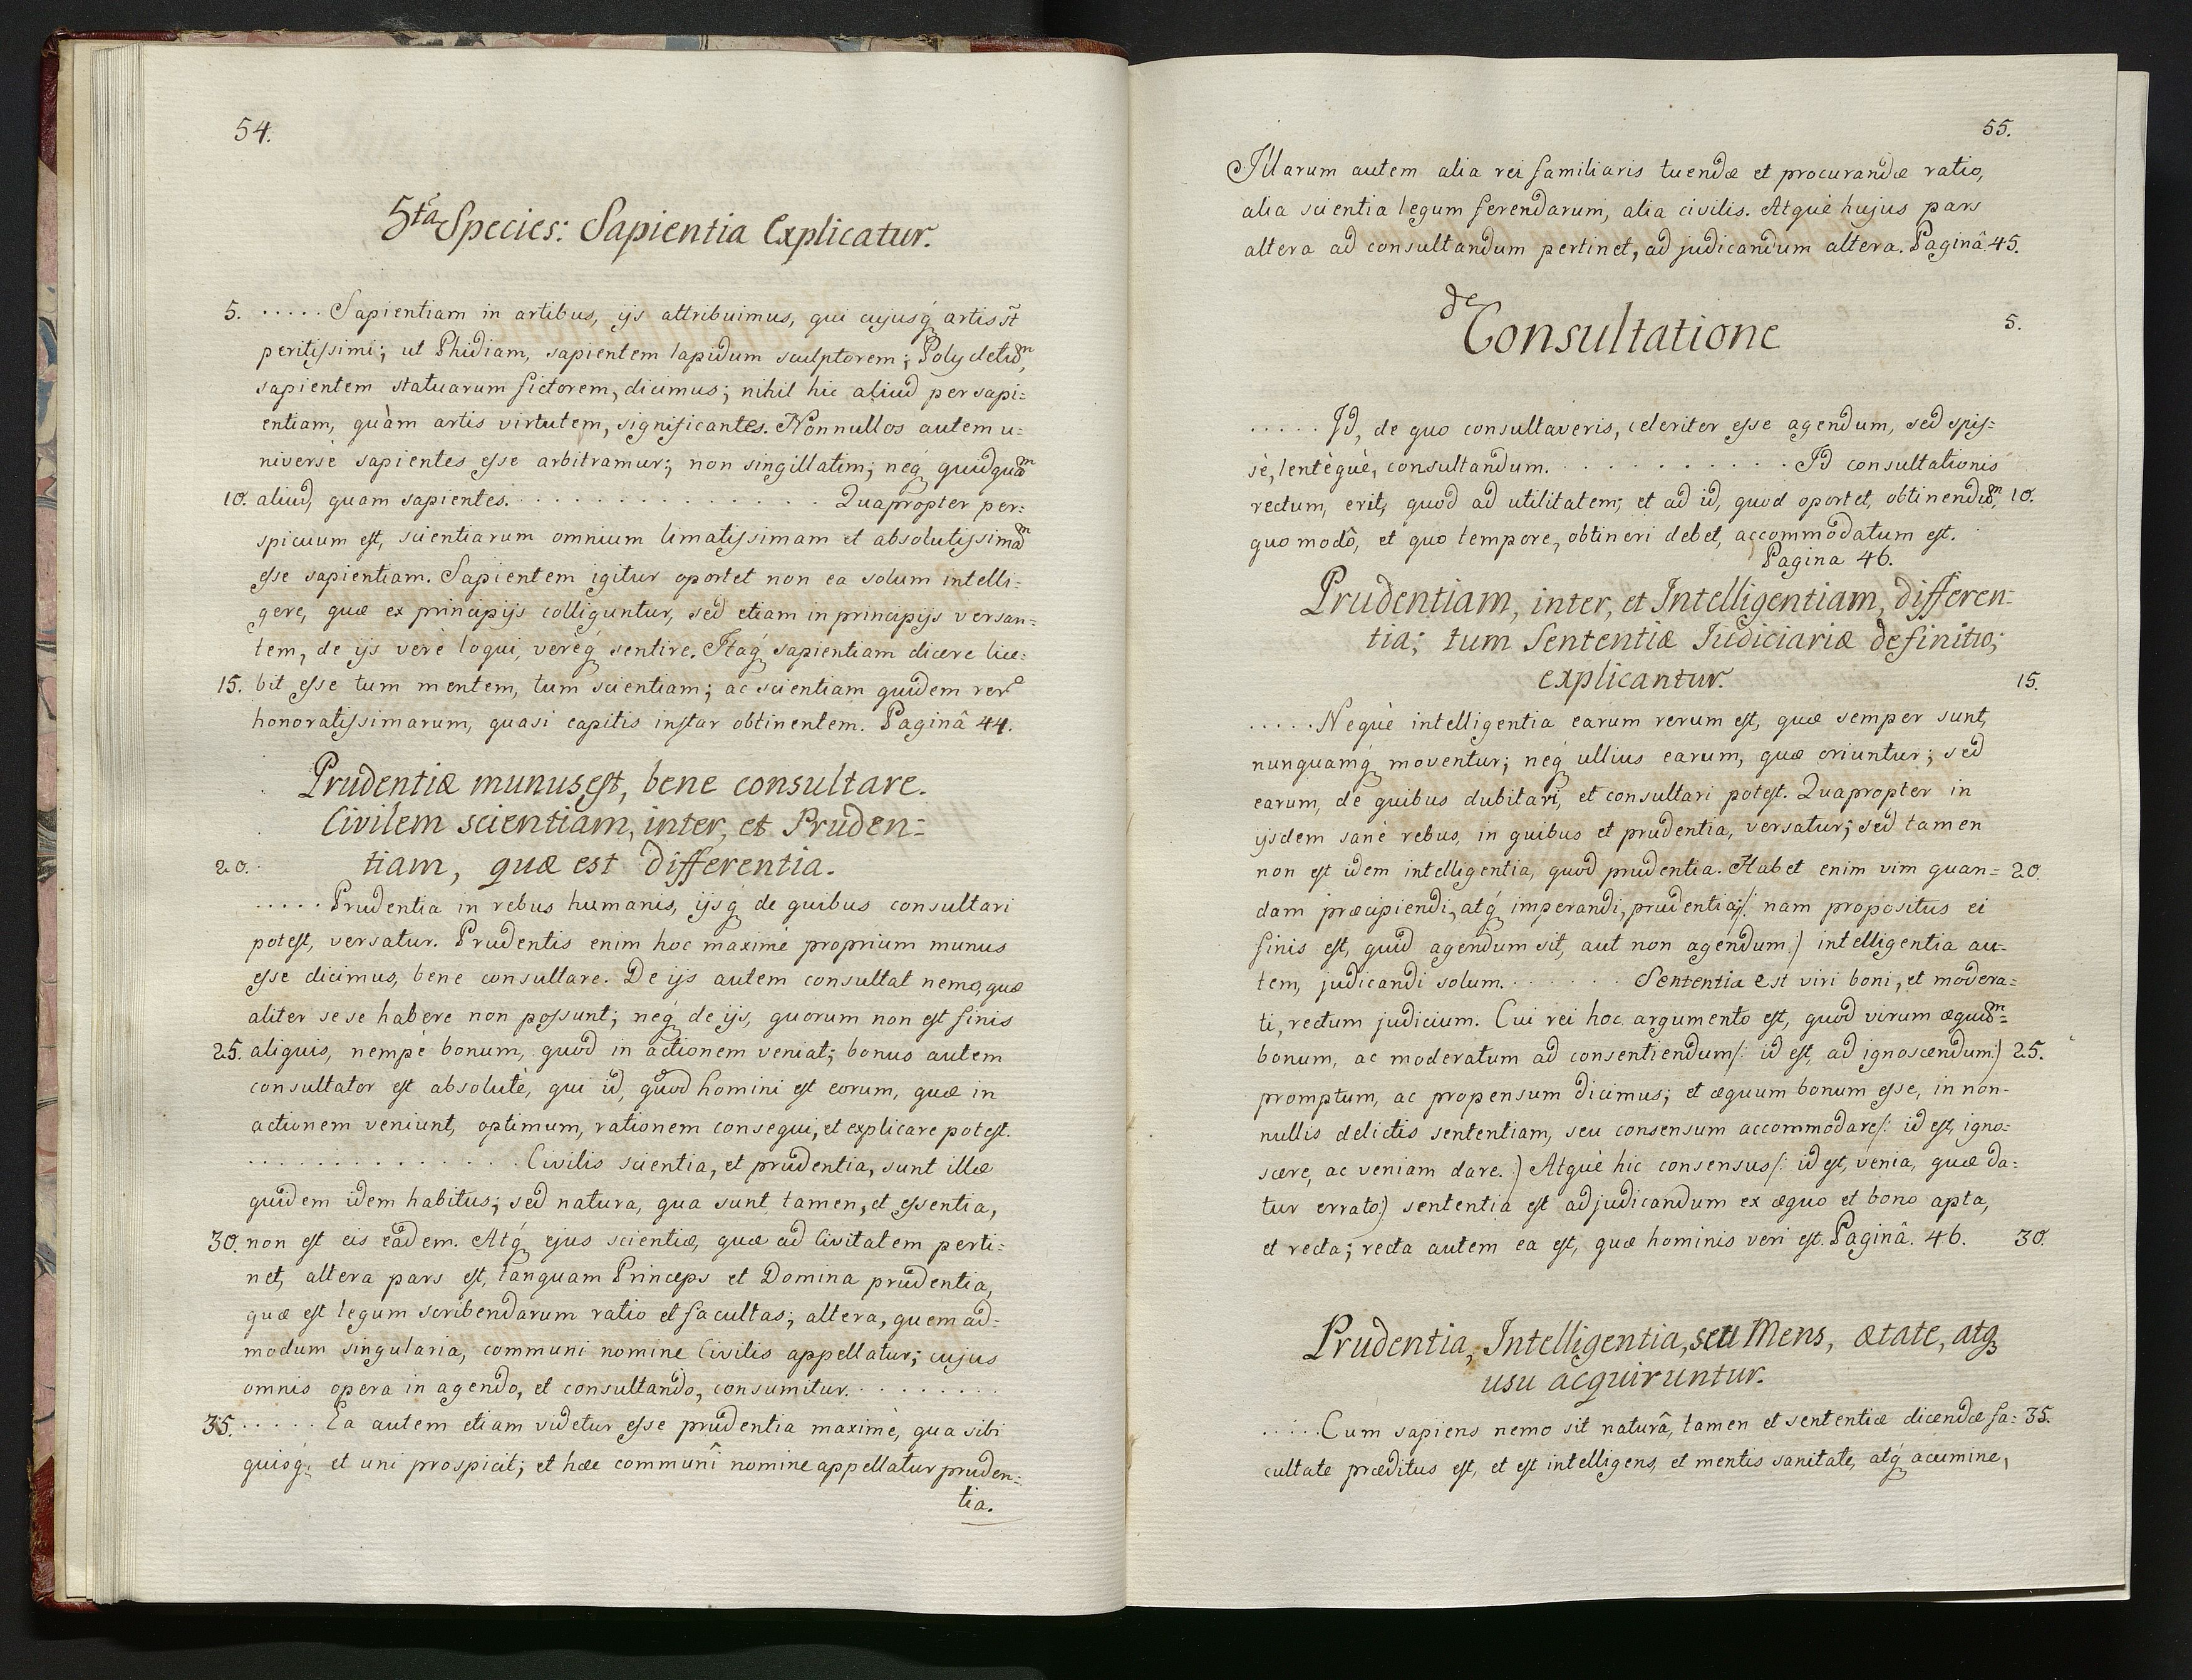 54.
5ta Species: Sapientia Explicatur.
5. ..... Sapientiam in artibus, ijs attribuimus, qui cujusq́ artis st̃
peritissimi; ut Phidiam, sapientem lapidum sculptorem; Polycletum,
sapientem statuarum fictorem, dicimus; nihil hic aliud per sapi=
entiam, quàm artis virtutem, significantes. Nonnullos autem u=
niversè sapientes esse arbitramur; non singillatim; neq́ quidquam
10. aliud, quam sapientes. . . . . . . . . . . . . . . . Quapropter per=
spicuum est, scientiarum omnium limatissimam et absolutissimam
esse sapientiam. Sapientem igitur oportet non ea solum intelli=
gere, quæ ex principijs colliguntur, sed etiam in principijs versan=
tem, de ijs verè loqui, verèq́ sentire. Itaq́ sapientiam dicere lice=
15. bit esse tum mentem, tum scientiam; ac scientiam quidem rer̃
honoratissimarum, quasi capitis instar obtinentem. Paginâ 44.
Prudentiæ munus est, bene consultare.
Civilem scientiam, inter, et Pruden=
20. tiam, quæ est differentia.
..... Prudentia in rebus humanis, ijsq́ de quibus consultari
potest, versatur. Prudentis enim hoc maximè proprium munus
esse dicimus, bene consultare. De ijs autem consultat nemo, quæ
aliter sese habere non possunt; neq́ de ijs, quorum non est finis
25. aliquis, nempè bonum, quod in actionem veniat; bonus autem
consultator est absolutè, qui id, quod homini est eorum, quæ in
actionem veniunt, optimum, rationem consequi, et explicare potest.
. . . . . . . . . . . . . . Civilis scientia, et prudentia, sunt illæ
quidem idem habitus; sed natura, qua sunt tamen, et essentia,
30. non est eis eâdem. Atq́ ejus scientiæ, quæ ad Civitatem perti=
net, altera pars est, tanquam Princeps et Domina prudentia,
quæ est legum scribendarum ratio et facultas; altera, quemad=
modum singularia, communi nomine Civilis appellatur; cujus
omnis opera in agendo, et consultando, consumitur. . . . . . . . .
35. ..... Ea autem etiam videtur esse prudentia maximè, qua sibi
quisq́; et uni prospicit; et hæc communî nomine appellatur pruden=
tia.
55.
Illarum autem alia rei familiaris tuendæ et procurandæ ratio,
alia scientia legum ferendarum, alia civilis. Atquè hujus pars
altera ad consultandum pertinet, ad judicandum altera. Paginâ 45.
de
Consultatione 5.
..... Id, de quo consultaveris, celeriter esse agendum, sed spis=
sè, lentèquè, consultandum. . . . . . . . . . . . Id consultationis
rectum, erit, quod ad utilitatem; et ad id, quod oportet, obtinendum, 10.
quo modô, et quo tempore, obtineri debet, accommodatum est.
Pagina 46.
Prudentiam, inter, et Intelligentiam, differen=
tia; tum Sententiæ Judiciariæ definitio;
explicantur. 15.
..... Nequè intelligentia earum rerum est, quæ semper sunt,
nunquamq́ moventur; neq́ ullius earum, quæ oriuntur; sed
earum, de quibus dubitari, et consultari potest. Quapropter in
ijsdem sanè rebus, in quibus et prudentia, versatur; sed tamen
non est idem intelligentia, quod prudentia. Habet enim vim quan= 20.
dam præcipiendi, atq́ imperandi, prudentia; /: nam propositus ei
finis est, quid agendum sit, aut non agendum :/ intelligentia au=
tem, judicandi solum. . . . . . . Sententia est viri boni, et modera=
ti, rectum judicium. Cui rei hoc argumento est, quod virum æquum=
bonum, ac moderatum ad consentiendum /: id est, ad ignoscendum :/ 25.
promptum, ac propensum dicimus; et æquum bonum esse, in non-
nullis delictis sententiam, seu consensum accommodare /: id est, igno=
scere, ac veniam dare. :/ Atquè hic consensus /: id est, venia, quæ da=
tur errato :/ sententia est adjudicandum ex æquo et bono apta,
et recta; recta autem ea est, quæ hominis veri est. Paginâ. 46. 30.
Prudentia, Intelligentia, seu Mens, ætate, atq́
usu acquiruntur.
..... Cum sapiens nemo sit naturâ, tamen et sententiæ dicendæ fa= 35.
cultate præditus est, et est intelligens, et mentis sanitate, atq́ acumine,